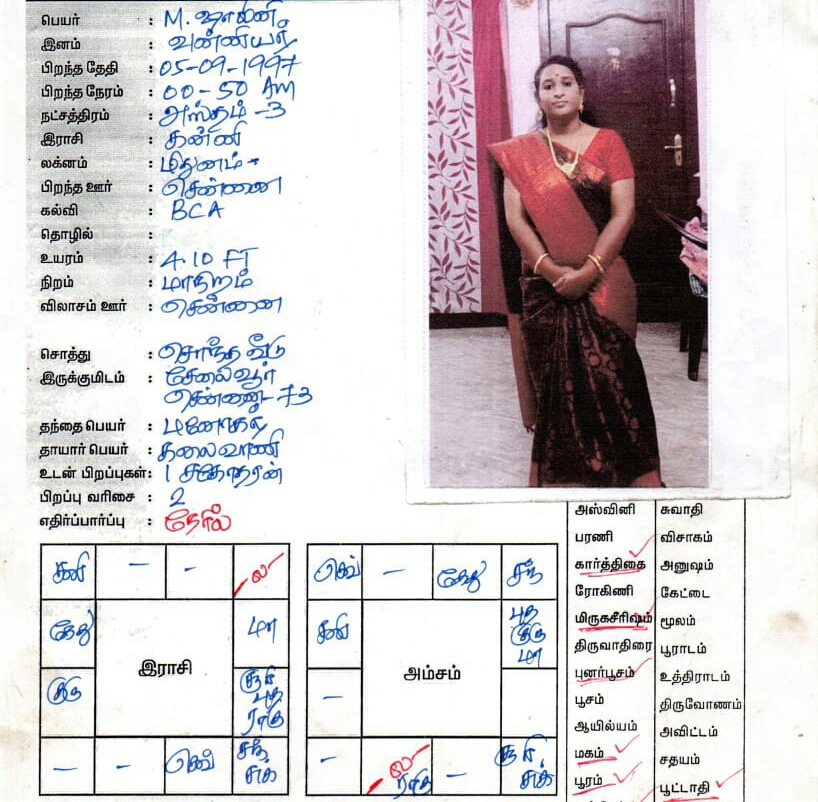 பெயர் : M. ஷாலினி
இனம் : வன்னியர்
பிறந்த தேதி : 05-09-1997
பிறந்த நேரம் : 00-50 AM
நட்சத்திரம் : அஸ்தம் -3
இராசி : கன்னி
லக்னம் : மிதுனம்
பிறந்த ஊர் : சென்னை
கல்வி : BCA
தொழில் :
உயரம் : 4.10 FT
நிறம் : மாநிறம்
விலாசம் ஊர் : சென்னை
சொத்து : சொந்த வீடு
இருக்குமிடம் : சேலையூர்
சென்னை-73
தந்தை பெயர் : மனோகர்
தாயார் பெயர் : கலைவாணி
உடன் பிறப்புகள்: 1 சகோதரன்
பிறப்பு வரிசை : 2
எதிர்ப்பார்ப்பு : நேரில்
சனி - - ல
கேது மா
குரு
சூரி
புத
ராகு
- - செவ்
சந்
சுக்
இராசி
செவ் - கேது சந்
சனி
புத
குரு
மா
-
- ல
ராகு -
சூரி
சுக்
அம்சம்
அஸ்வினி சுவாதி
பரணி விசாகம்
கார்த்திகை அனுஷம்
ரோகிணி கேட்டை
மிருகசீரிஷம் மூலம்
திருவாதிரை பூராடம்
புனர்பூசம் உத்திராடம்
பூசம் திருவோணம்
ஆயில்யம் அவிட்டம்
மகம் சதயம்
பூரம் பூட்டாதி